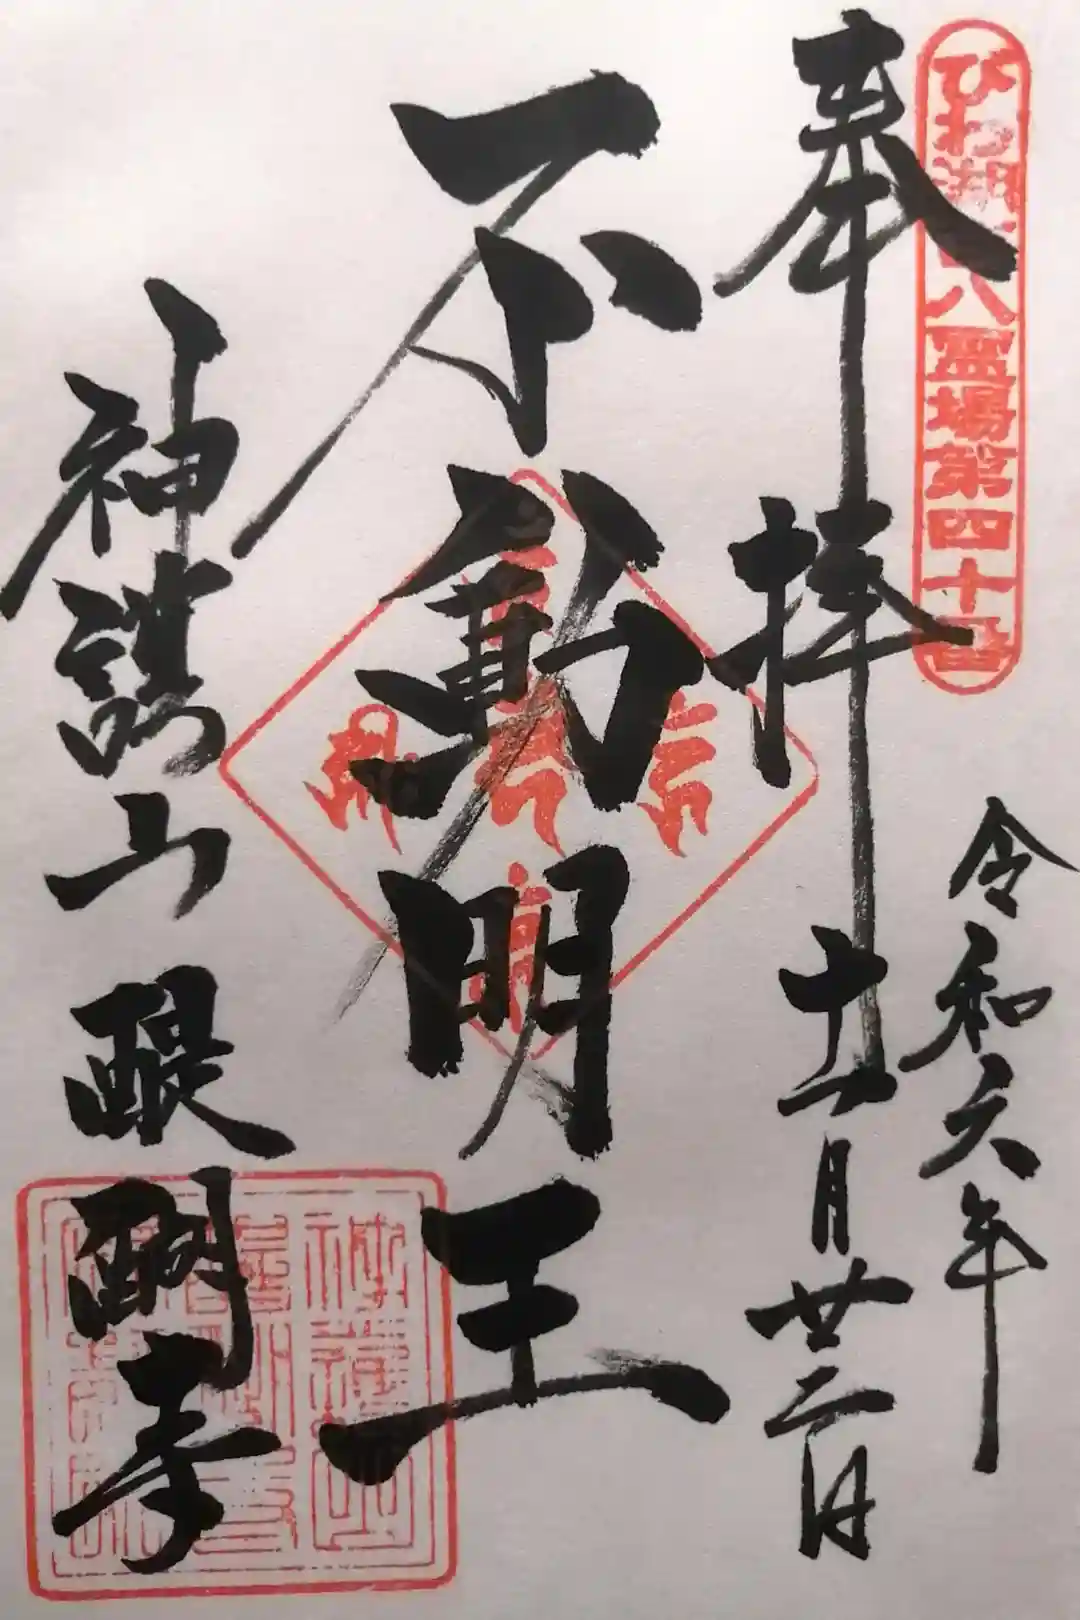 びわ湖百八霊場第四十番
奉拝
令和六年
十一月廿二日
不動明王
神護山 醍醐寺